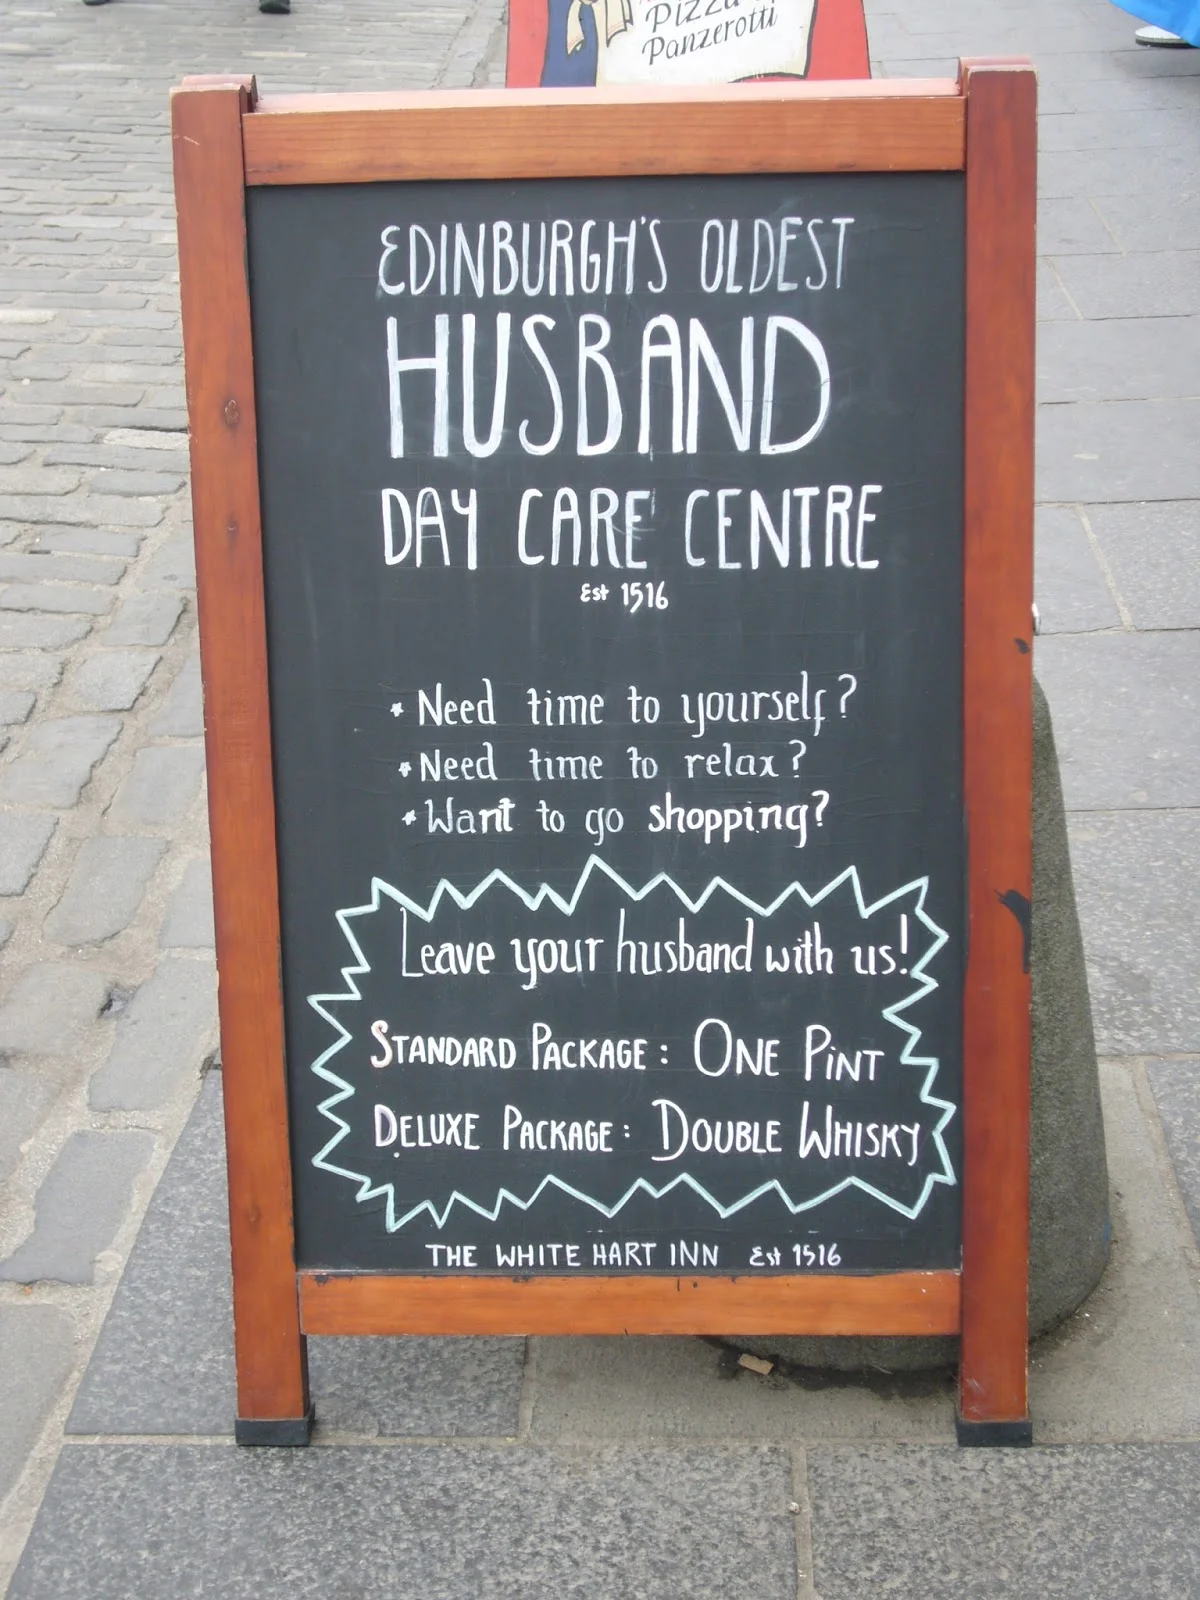 Pizza
Panzerotti
EDINBURGH'S OLDEST
HUSBAND
DAY CARE CENTRE
Est 1516
* Need time to yourself?
* Need time to relax?
* Want to go shopping?
Leave your husband with us!
STANDARD PACKAGE: ONE PINT
DELUXE PACKAGE: DOUBLE WHISKY
THE WHITE HART INN Est 1516